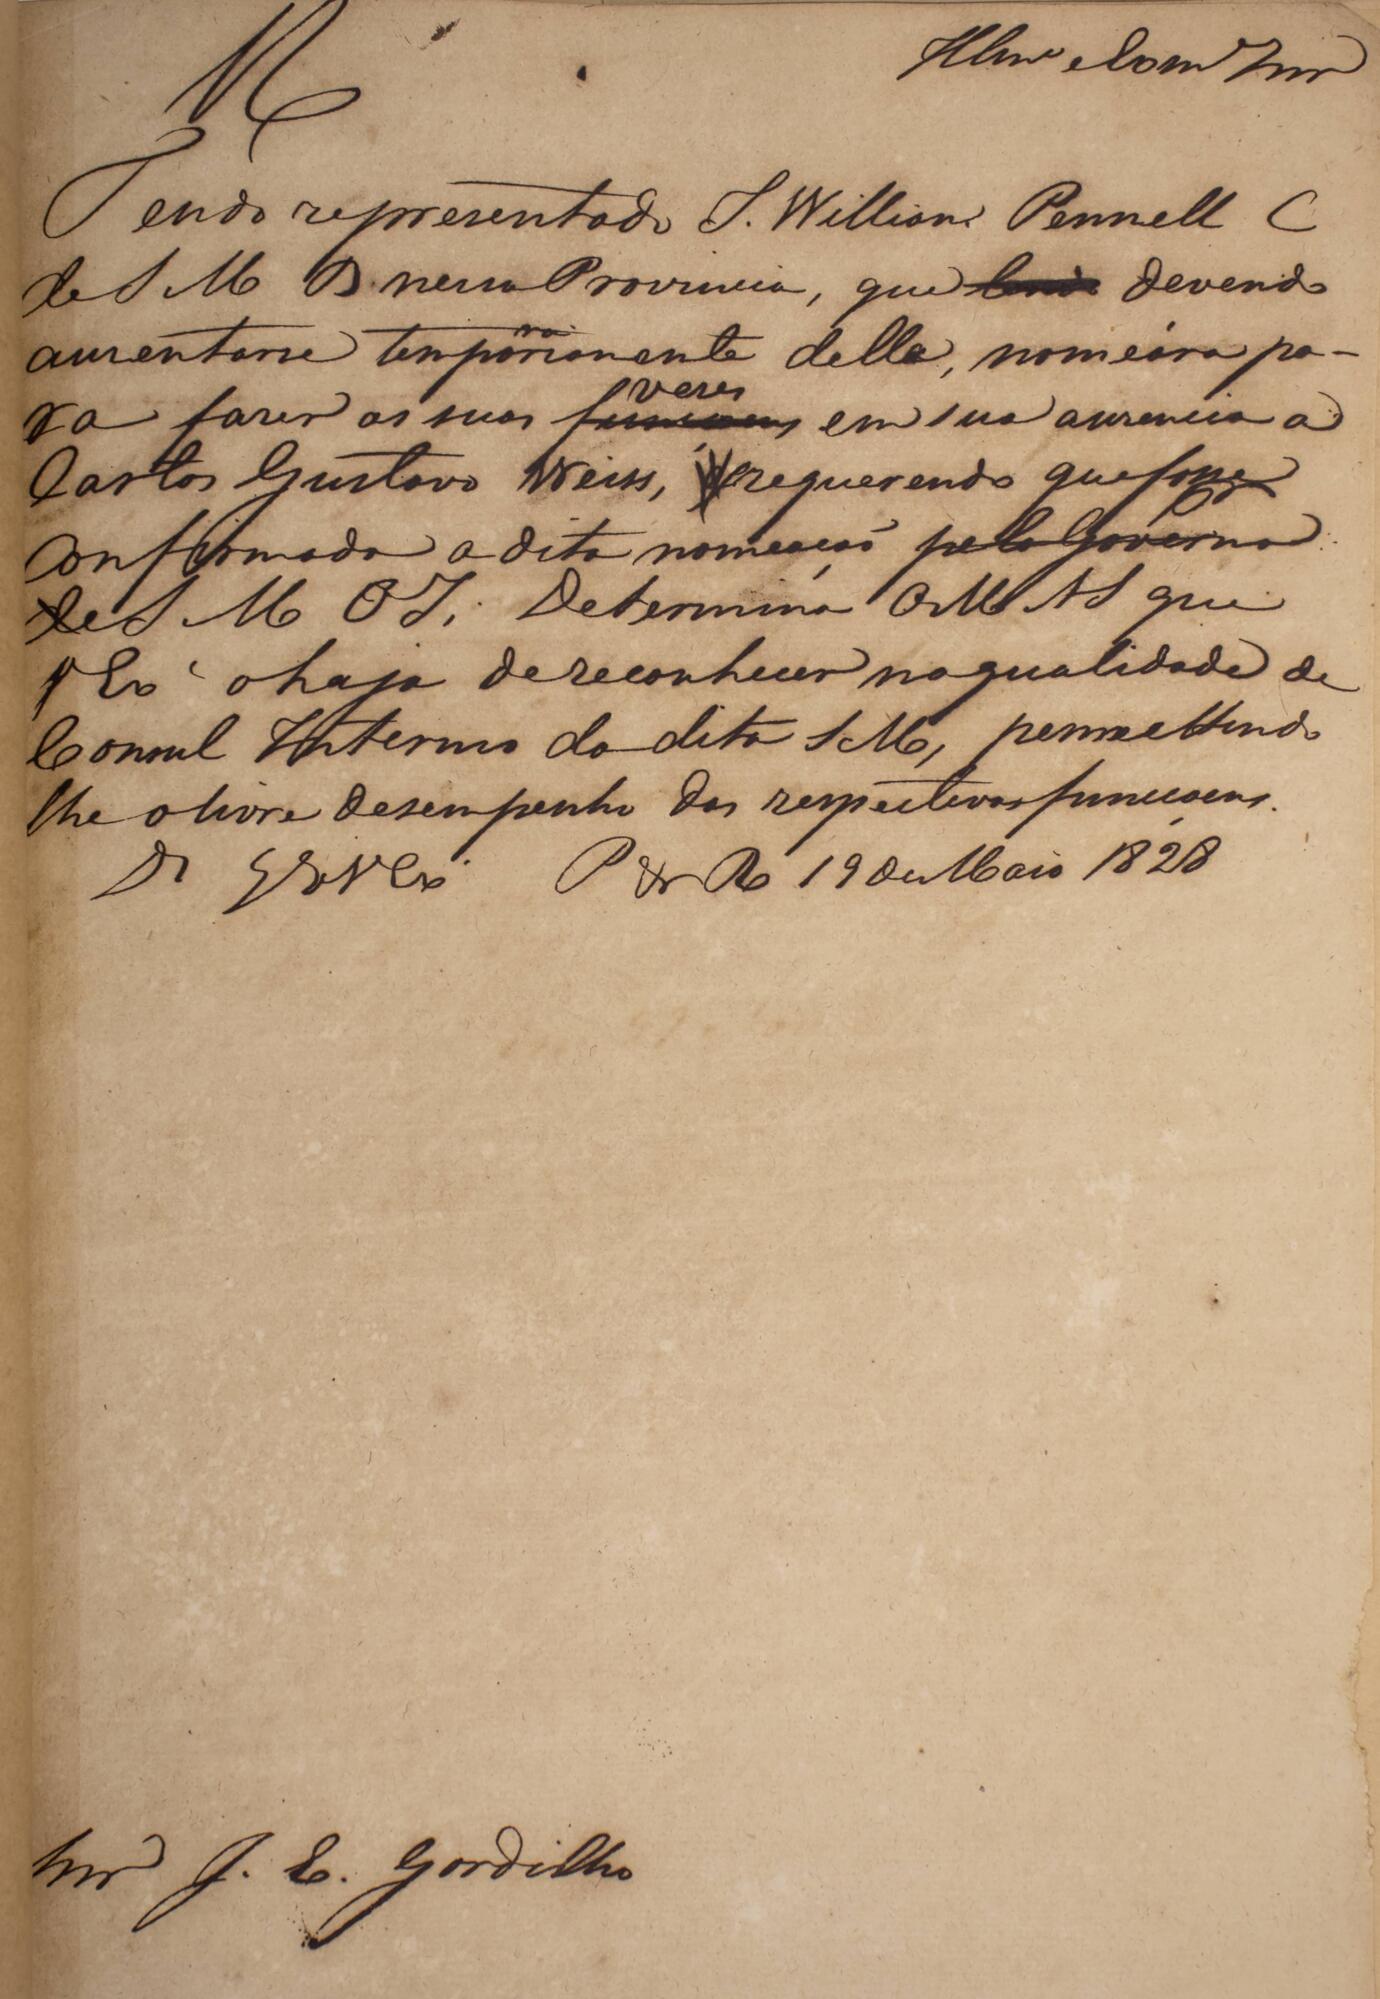 R
Illmo e Exmo Snr
Tendo representado J. William Pennell C
de S M B nessa Provincia, que devendo
ausentarse temporariamente della, nomeára pa-
ra fazer as suas funcçoens vezes em sua ausencia a
Carlos Gustavo Weiss, requerendo que fosse
confirmada a dita nomeação pelo Governo
de S M O I; Determina O M A S que
V Exa o haja de reconhecer na qualidade de
Consul Interino da dita S M, permettindo
lhe o livre desempenho das respectivas funcçoens.
D G a V Exa P do R 19 de Maio 1828
Snr J. E. Gordilho